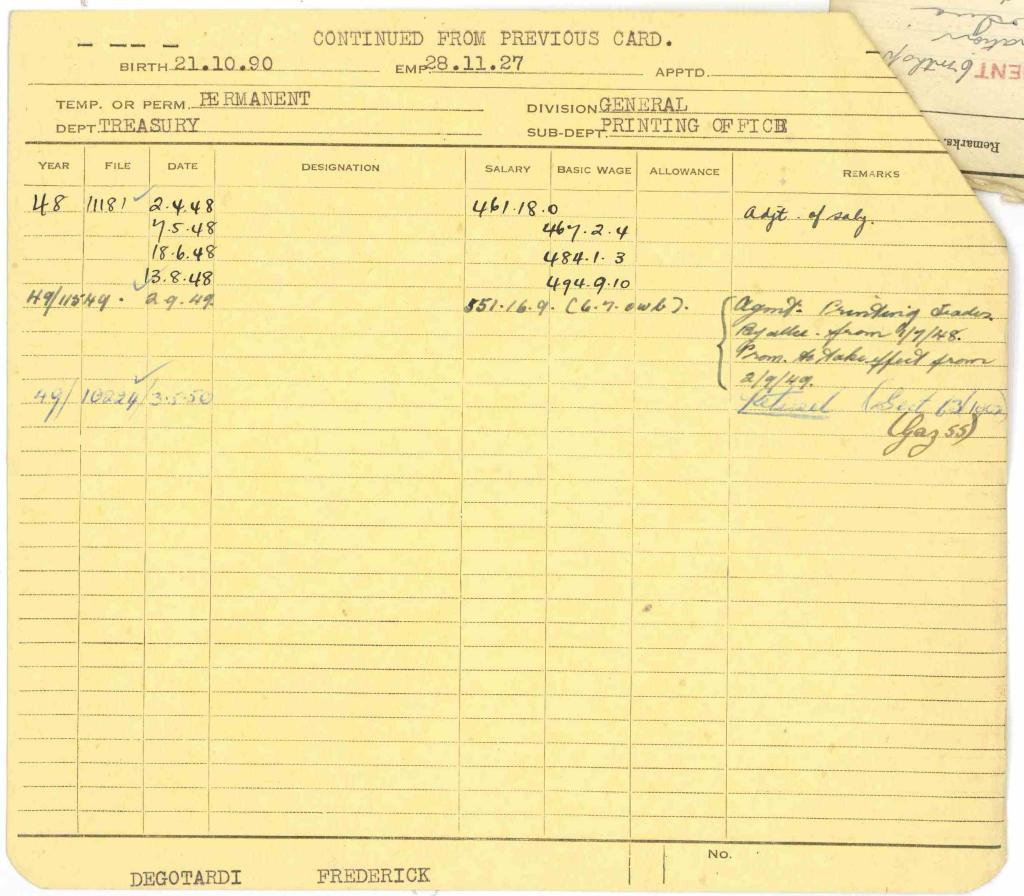 CONTINUED FROM PREVIOUS CARD.
BIRTH 21.10.90 EMP 28.11.27 APPTD.
TEMP. OR PERM. PERMANENT DIVISION GENERAL
DEPT TREASURY SUB-DEPT. PRINTING OFFICE
Remarks.
YEAR FILE DATE DESIGNATION SALARY BASIC WAGE ALLOWANCE REMARKS
48 11181 ✓ 2.4.48 461.18.0 Adjt. of saly.
7.5.48 467.2.4
18.6.48 484.1.3
13.8.48 494.9.10
49/11549. 2.9.49 551.16.9. (6.7. owb). Agmt. Printing Trades
from 1/7/48.
Prom. to take effect from
2/9/49.
49/ 10224 ✓ 3.5.50 Retired (Sect 13/
(Gaz 55)
No.
DEGOTARDI FREDERICK